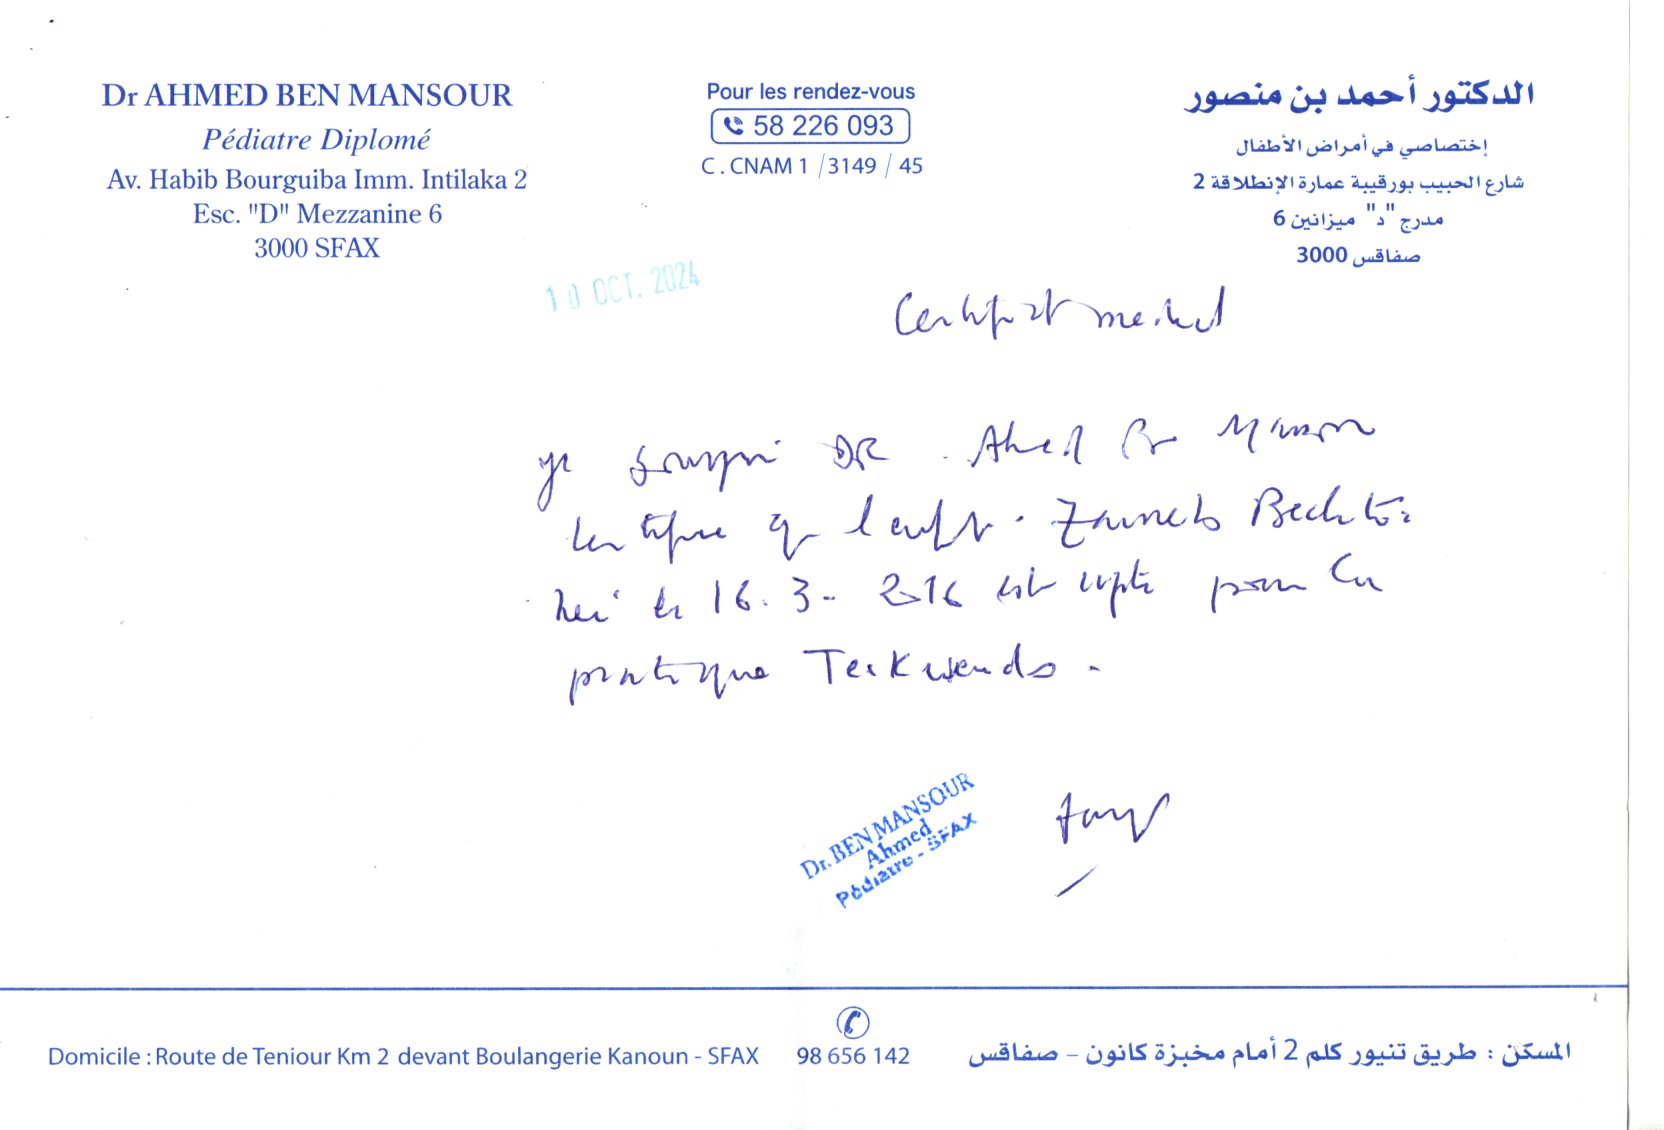 Dr AHMED BEN MANSOUR
Pédiatre Diplomé
Av. Habib Bourguiba Imm. Intilaka 2
Esc. "D" Mezzanine 6
3000 SFAX
Pour les rendez-vous
58 226 093
C . CNAM 1 / 3149 / 45
الدكتور أحمد بن منصور
إختصاصي في أمراض الأطفال
شارع الحبيب بورقيبة عمارة الإنطلاقة 2
مدرج "د" ميزانين 6
صفاقس 3000
10 OCT. 2024
Certificat medical
je soussigné DR. Ahmed Ben Mansour
certifie que l'enfant. Zaineb Bechtoi
née le 16.3-2016 est apte pour la
pratique Teikwendo.
Dr. BEN MANSOUR
Ahmed
Pédiatre - SFAX
Domicile : Route de Teniour Km 2 devant Boulangerie Kanoun - SFAX
98 656 142
المسكن : طريق تنيور كلم 2 أمام مخبزة كانون - صفاقس